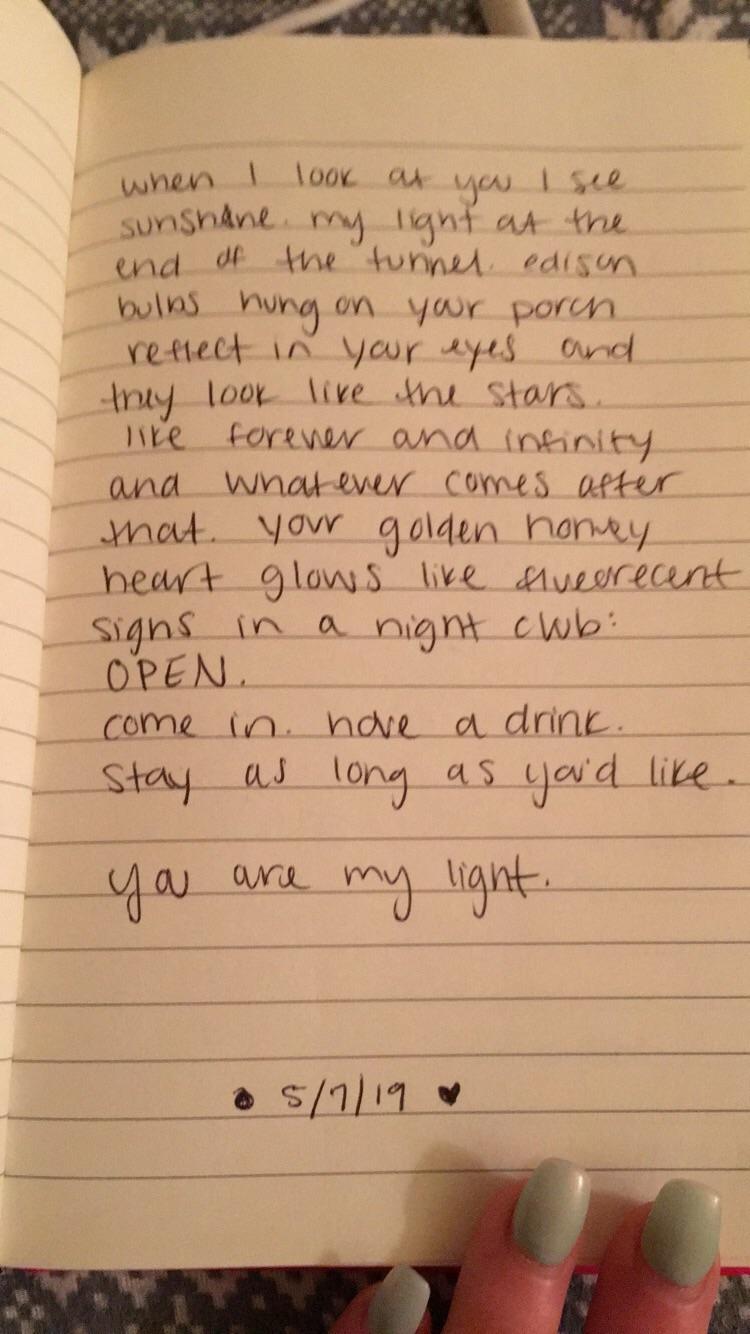 when I look at you I see
sunshine. my light at the
end of the tunnel. edison
bulbs hung on your porch
reflect in your eyes and
they look like the stars.
like forever and infinity
and whatever comes after
that. your golden honey
heart glows like flueorecent
signs in a night club:
OPEN.
come in. have a drink.
stay as long as you'd like.
you are my light.
5/7/19 ♥